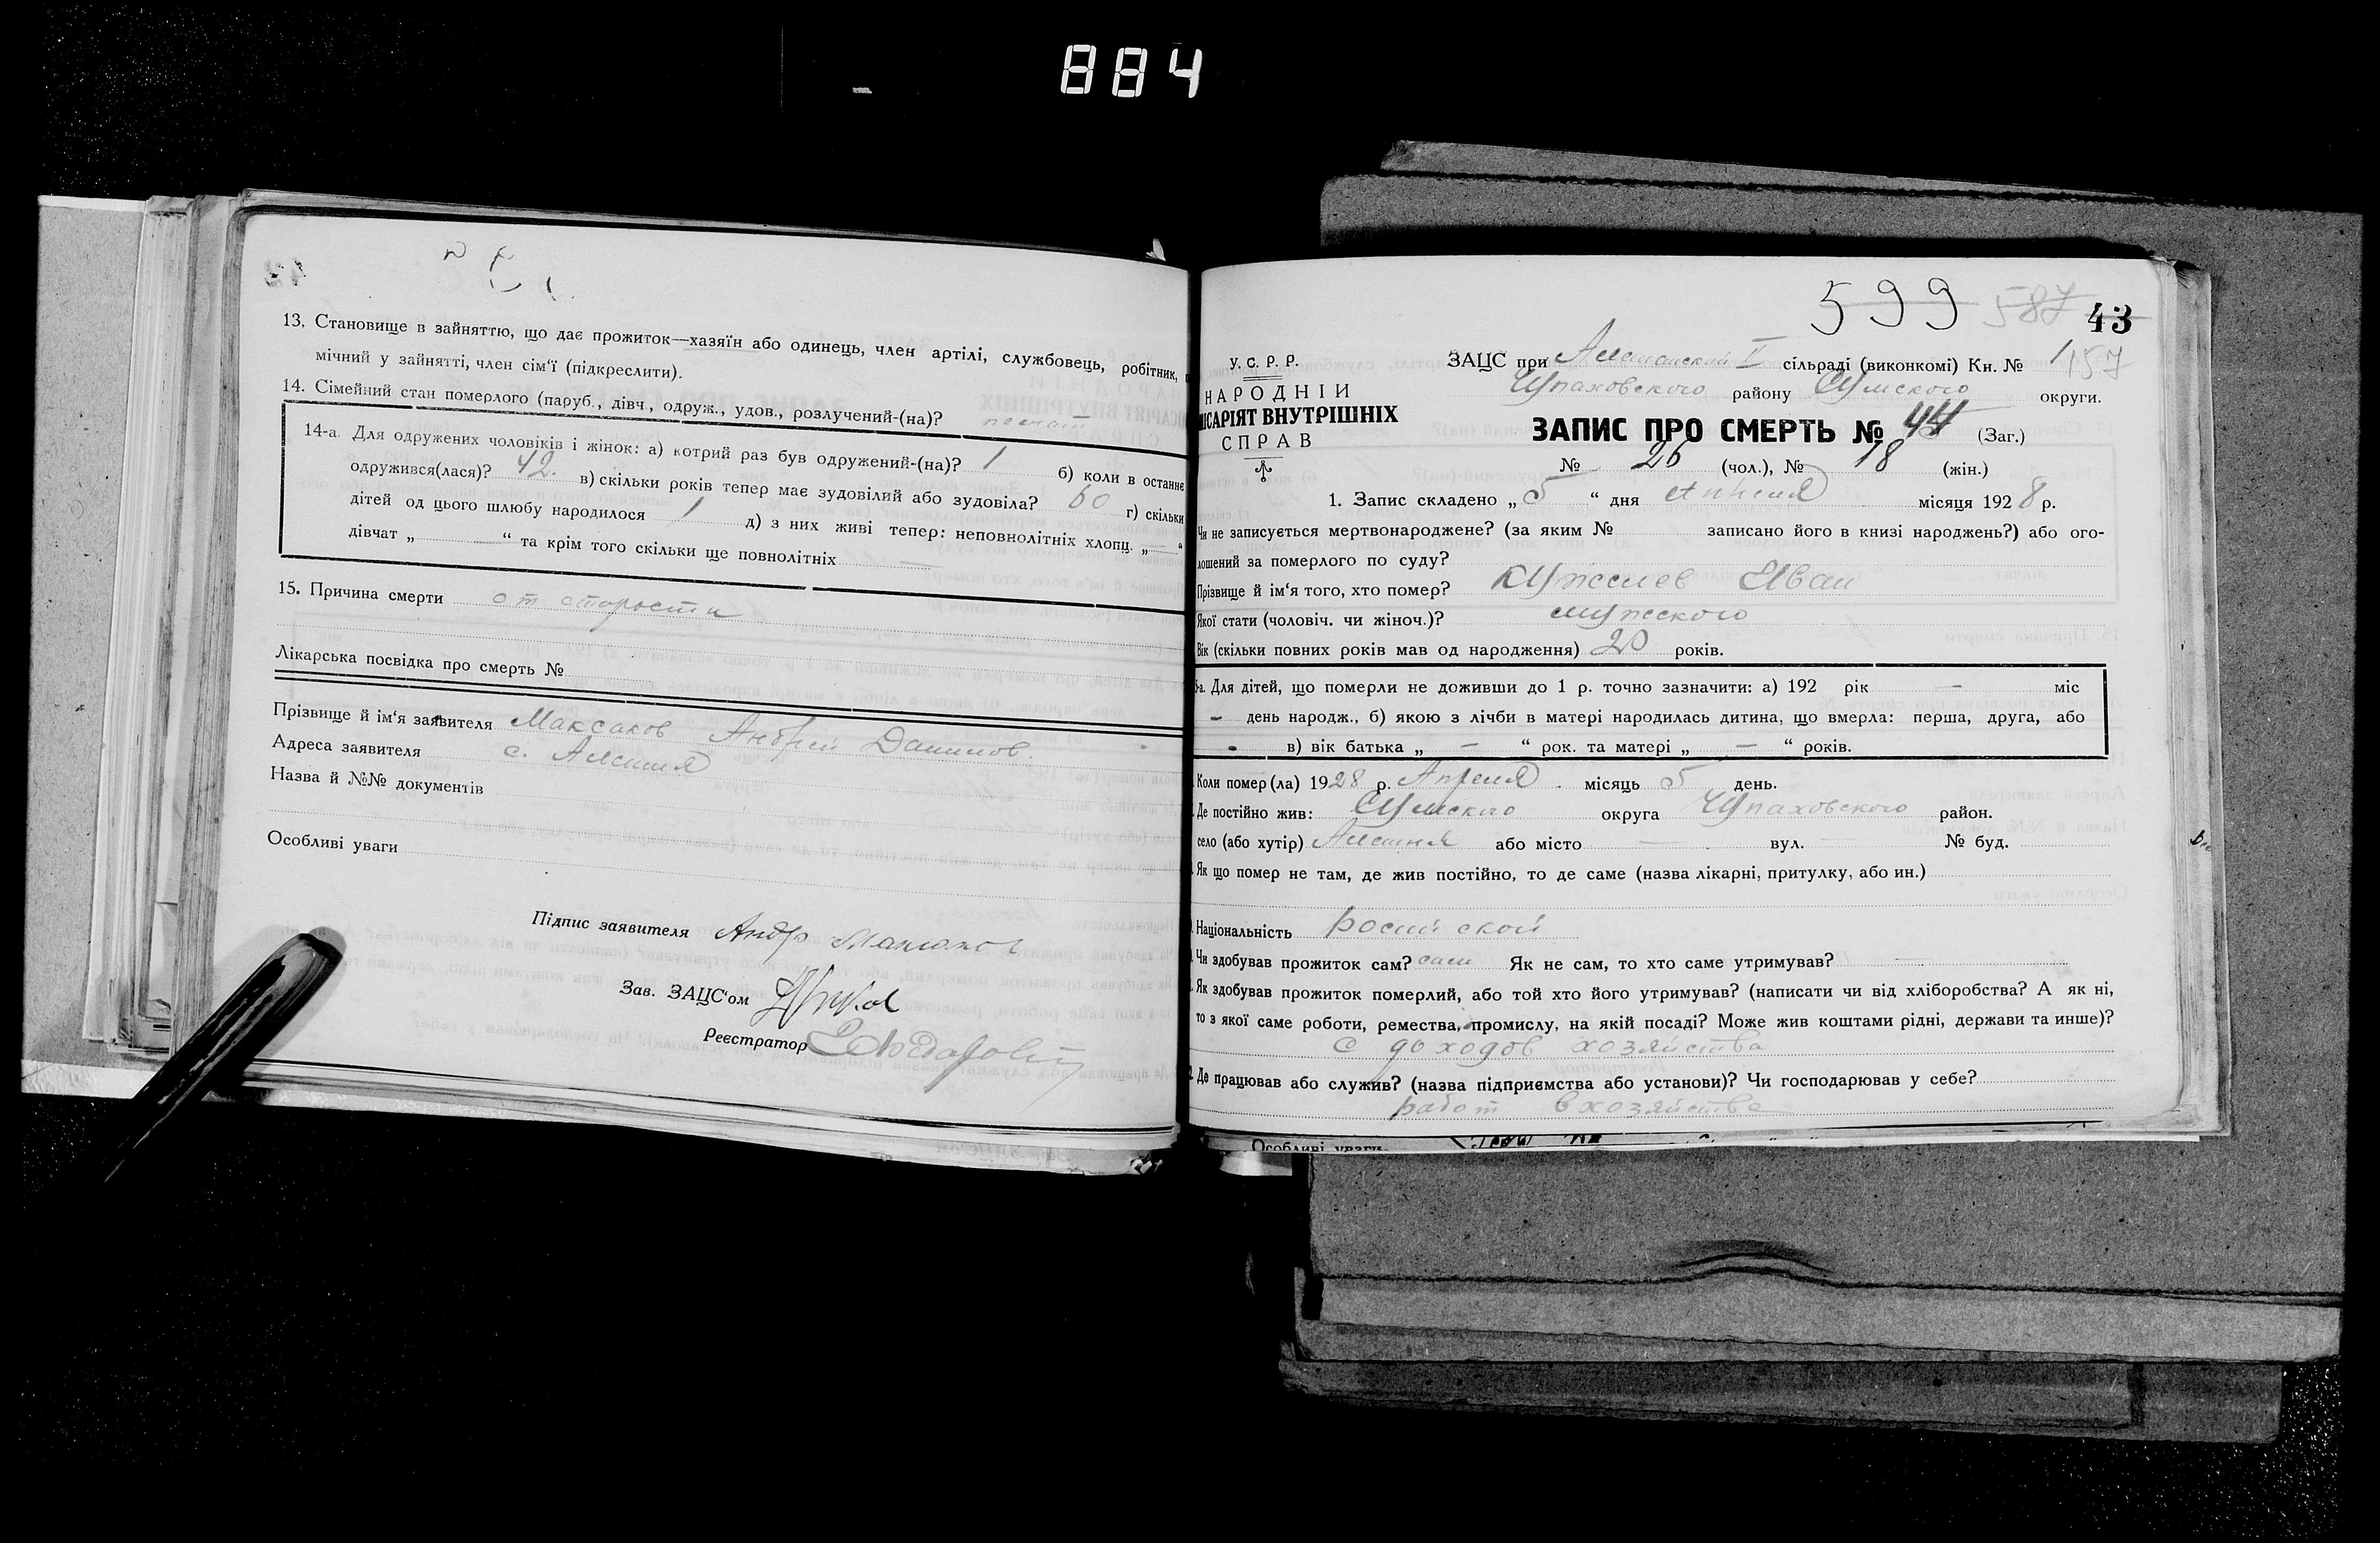 884
13. Становище в зайняттю, що дає прожиток—хазяїн або одинець, член артілі, службовець, робітник,
мічний у зайнятті, член сім'ї (підкреслити).
14. Сімейний стан померлого (паруб., дівч., одруж., удов., розлучений-(на)?
14-а. Для одружених чоловіків і жінок: а) котрий раз був одружений-(на)? 1 б) коли в останнє
одружився(лася)? 42. в) скільки років тепер має зудовілий або зудовіла? 60 г) скільки
дітей од цього шлюбу народилося 1 д) з них живі тепер: неповнолітніх хлопц. „—“
дівчат „—“ та крім того скільки ще повнолітніх —
15. Причина смерти от старости
Лікарська посвідка про смерть №
Прізвище й ім'я заявителя Максаков Андрей Данилов.
Адреса заявителя с. Алешня
Назва й №№ документів
Особливі уваги
Підпис заявителя Андр Максаков
Зав. ЗАЦС'ом
Реєстратор
599 587 43
У. С. Р. Р.
НАРОДНІЙ
ІСАРІЯТ ВНУТРІШНІХ
СПРАВ
ЗАЦС при Алешанский II сільраді (виконкомі) Кн. № 1 157
Чупаховского району Сумского округи.
ЗАПИС ПРО СМЕРТЬ № 44 (Заг.)
№ 26 (чол.), № 18 (жін.)
1. Запис складено „5“ дня Апреля місяця 1928 р.
Чи не записується мертвонароджене? (за яким № записано його в книзі народжень?) або ого-
лошений за померлого по суду?
Прізвище й ім'я того, хто помер? Кужелев Иван
Якої стати (чоловіч. чи жіноч.)? мужского
Вік (скільки повних років мав од народження) 20 років.
5-а. Для дітей, що померли не доживши до 1 р. точно зазначити: а) 192 рік — міс
- день народж., б) якою з лічби в матері народилась дитина, що вмерла: перша, друга, або
- в) вік батька „ — “ рок. та матері „ — “ років.
Коли помер (ла) 1928 р. Апреля місяць 5 день.
Де постійно жив: Сумского округа Чупаховского район.
село (або хутір) Алешня або місто — вул. — № буд.
Як що помер не там, де жив постійно, то де саме (назва лікарні, притулку, або ин.)
Національність росийской
Чи здобував прожиток сам? сам Як не сам, то хто саме утримував? —
Як здобував прожиток померлий, або той хто його утримував? (написати чи від хліборобства? А як ні,
то з якої саме роботи, ремества, промислу, на якій посаді? Може жив коштами рідні, держави та инше)?
С доходов хозяйства
Де працював або служив? (назва підприємства або установи)? Чи господарював у себе?
работ в хозяйстве
Особливі уваги